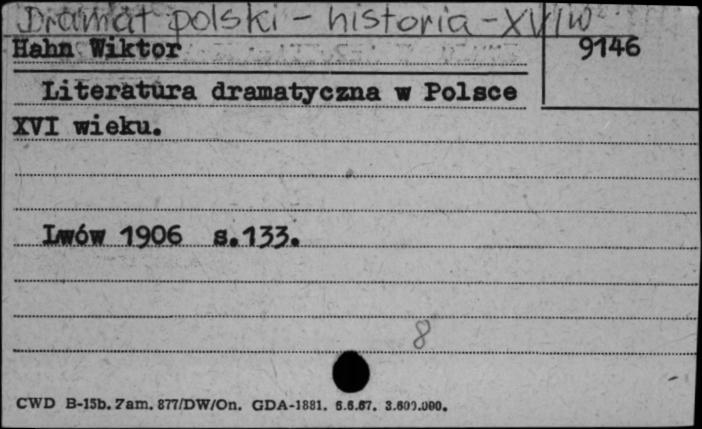 Dramat polski - historia - XVI w
Hahn Wiktor
9146
Literatura dramatyczna w Polsce
XVI wieku.
Lwów 1906 s.133.
8
CWD B-15b. Zam. 877/DW/On. GDA-1881. 6.6.67. 3.600.000.